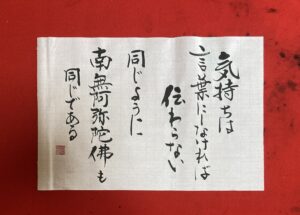 気持ちは
言葉にしなければ
伝わらない
同じように
南無阿弥陀佛も
同じである